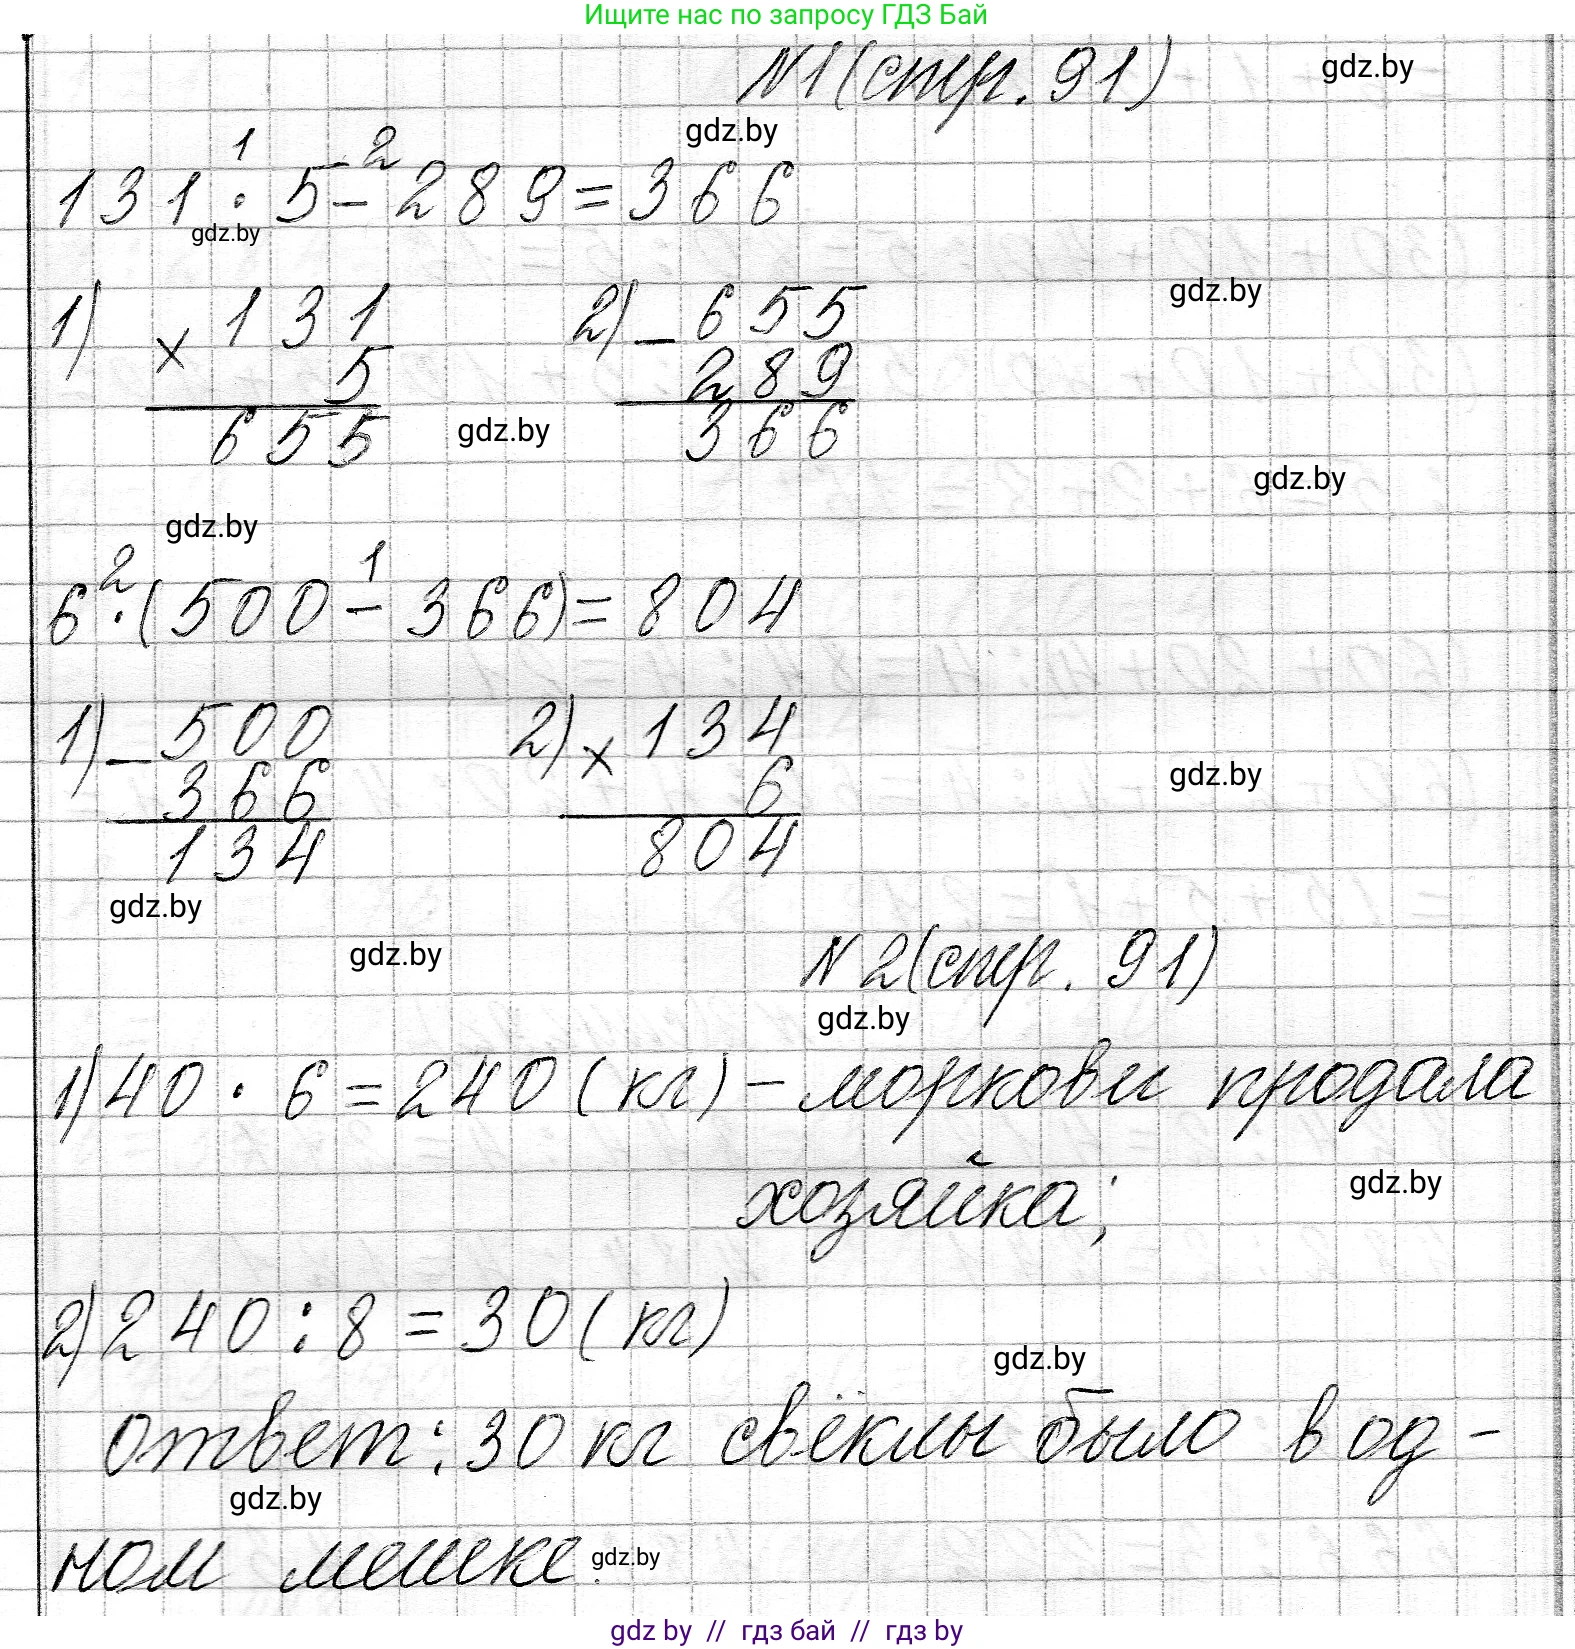 Ищите нас по запросу ГДЗ Бай
№1 (стр. 91)
gdz.by
gdz.by
1 2
131 · 5 - 289 = 366
gdz.by
1) × 131 2) - 655
gdz.by
5 289
655 366
gdz.by
gdz.by
gdz.by
2 1
6 · (500 - 366) = 804
1) - 500 2) × 134
366 6
gdz.by
134 804
gdz.by
gdz.by
№2 (стр. 91)
gdz.by
1) 40 · 6 = 240 (кг) - моркови продала
хозяйка;
gdz.by
2) 240 : 8 = 30 (кг)
gdz.by
ответ: 30 кг свёклы было в од-
gdz.by
ном мешке.
gdz.by
gdz by // гдз бай // gdz by